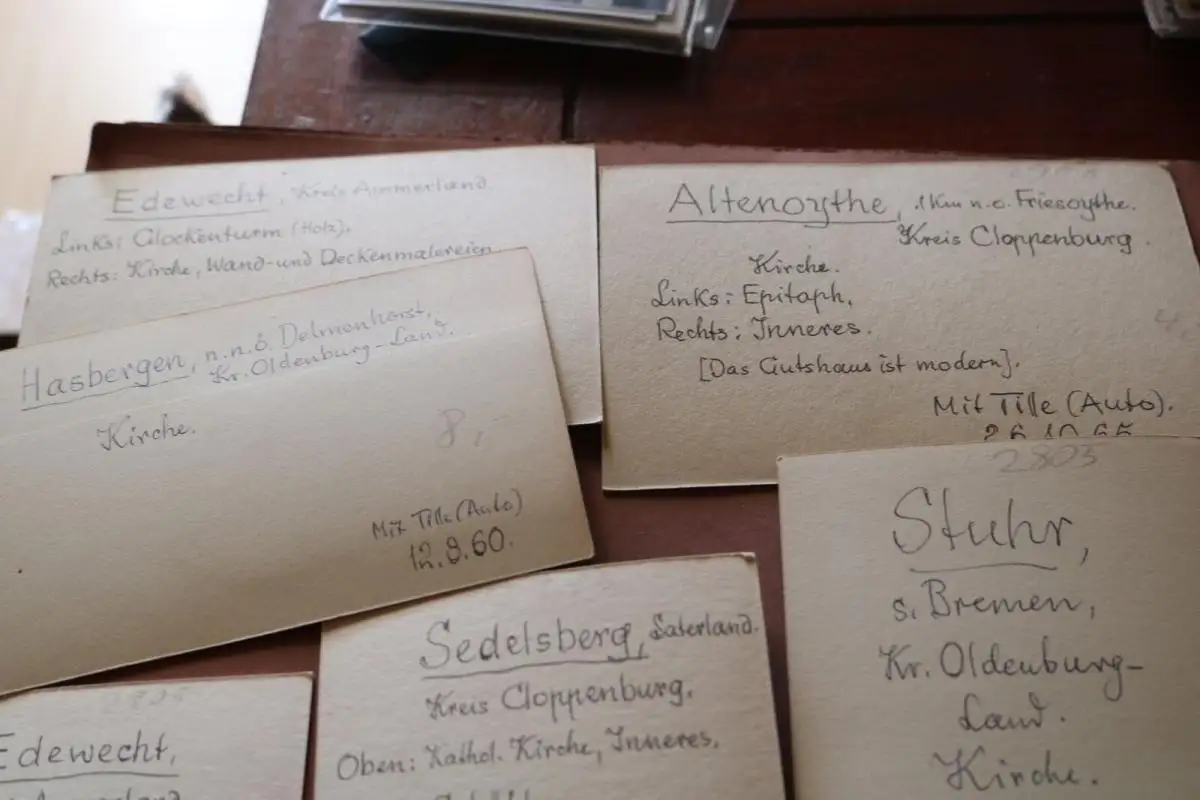 Edewecht, Kreis Ammerland.
Links: Glockenturm (Holz).
Rechts: Kirche, Wand-und Deckenmalereien
Altenoythe, 1km n.o. Friesoythe.
Kreis Cloppenburg.
Kirche.
Links: Epitaph,
Rechts: Inneres.
[Das Gutshaus ist modern].
Mit Tille (Auto).
26.10.65
4,
Hasbergen, n.n.ö. Delmenhorst,
Kr. Oldenburg-Land.
Kirche.
8,-
Mit Tille (Auto)
12.9.60.
2803
Stuhr,
s. Bremen,
Kr. Oldenburg-
Land.
Kirche.
Sedelsberg, Saterland.
Kreis Cloppenburg.
Oben: Kathol. Kirche, Inneres.
Edewecht,
Ammerland